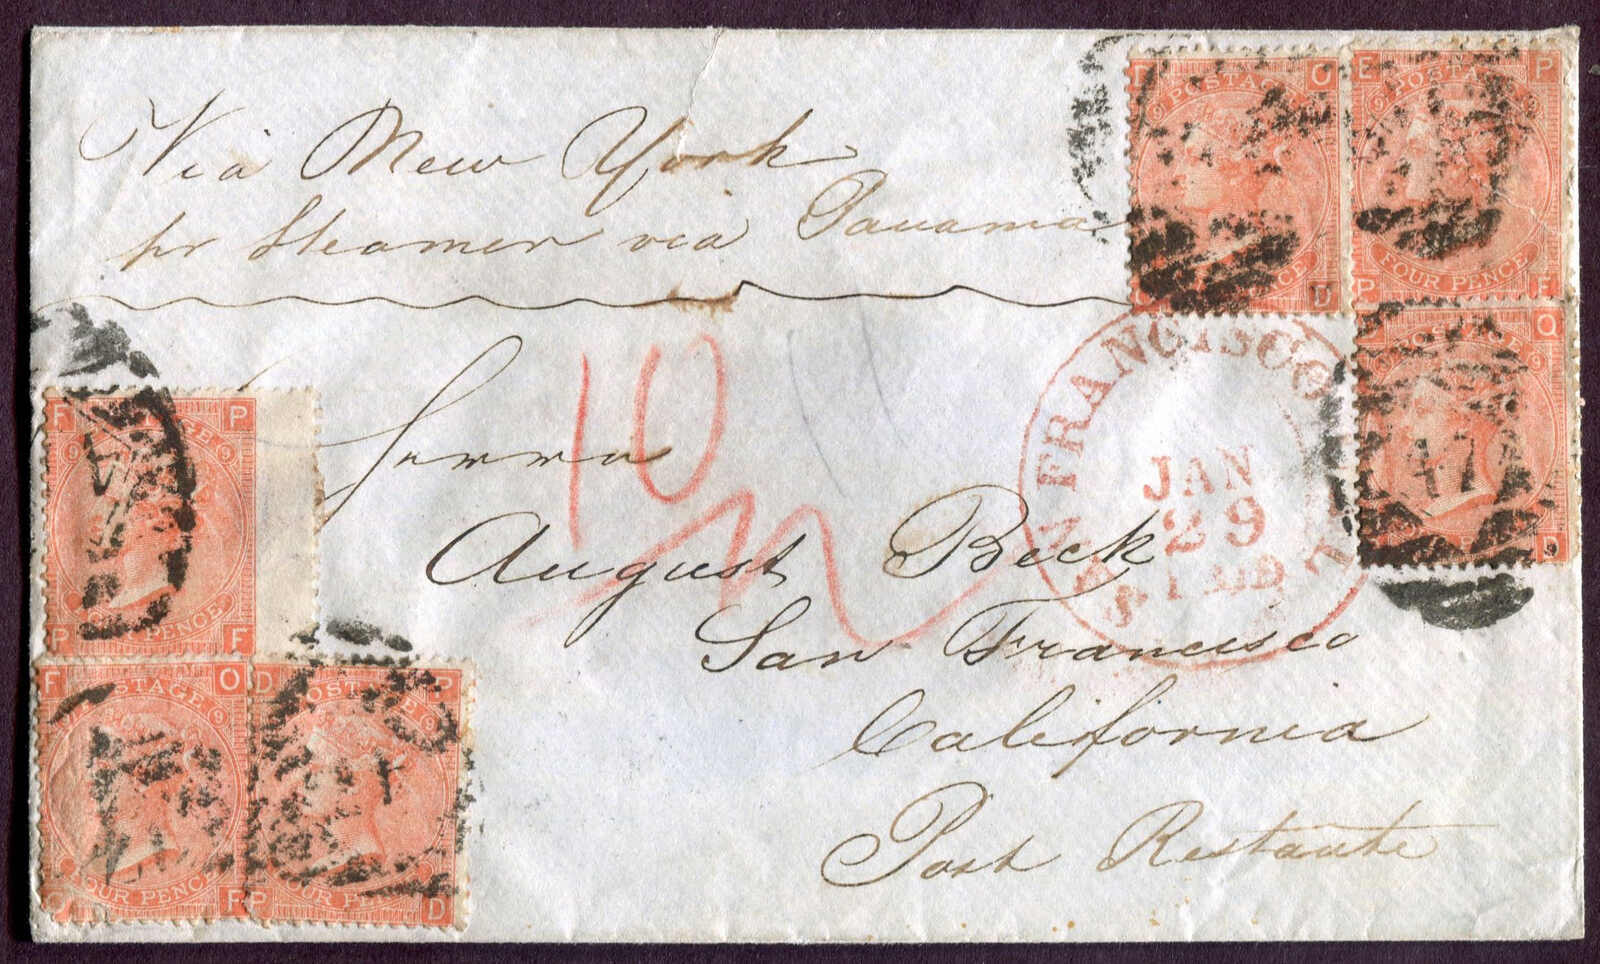 Via New York
pr Steamer via Panama
10
August Beck
San Francisco
California
Post Restante
SAN FRANCISCO CAL
JAN
29
PAID
POSTAGE
O
D
E P
POSTAGE
9 9
FOUR PENCE
P E
Q
POSTAGE
9
47
D
F P
POSTAGE
9 9
FOUR PENCE
P F
F O
POSTAGE
9
FOUR PENCE
O F
D P
POSTAGE
9
FOUR PENCE
P D